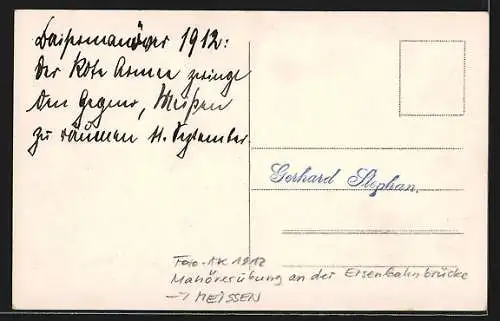 Kaisermanöver 1912:
Die Rote Armee zwingt
den Gegner, Meißen
zu räumen 11. September
Gerhard Stephan.
Foto-AK 1912
Manöverübung an der Eisenbahnbrücke
→ MEISSEN